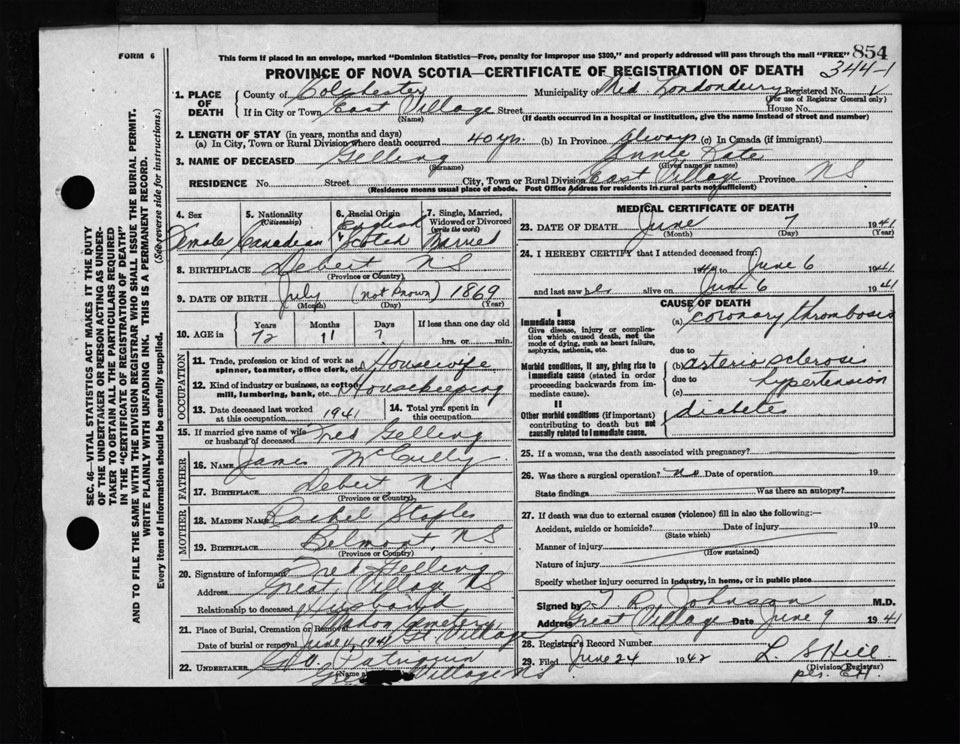 FORM 6
This form if placed in an envelope, marked "Dominion Statistics—Free, penalty for improper use $300," and properly addressed will pass through the mail "FREE" 854
PROVINCE OF NOVA SCOTIA—CERTIFICATE OF REGISTRATION OF DEATH 344-1
1. PLACE OF DEATH
County of Colchester Municipality of Mid. Londonderry Registered No.
(For use of Registrar General only)
If in City or Town East Village Street House No.
(Name) (If death occurred in a hospital or institution, give the name instead of street and number)
2. LENGTH OF STAY (in years, months and days)
(a) In City, Town or Rural Division where death occurred 40 yrs. (b) In Province Always (c) In Canada (if immigrant)
3. NAME OF DECEASED Gelling Annie Kate
(Surname) (Given name or names)
RESIDENCE No. Street City, Town or Rural Division East Village Province NS
(Residence means usual place of abode. Post Office Address for residents in rural parts not sufficient)
4. Sex
Female
5. Nationality
(Citizenship)
Canadian
6. Racial Origin
English
Scotch
7. Single, Married, Widowed or Divorced
(write the word)
Married
8. BIRTHPLACE Debert, NS
(Province or Country)
9. DATE OF BIRTH July (not known) 1869
(Month) (Day) (Year)
10. AGE in
Years Months Days If less than one day old
72 11 ? hrs. or min.
OCCUPATION
11. Trade, profession or kind of work as spinner, teamster, office clerk, etc. Housewife
12. Kind of industry or business, as cotton mill, lumbering, bank, etc. Housekeeping
13. Date deceased last worked at this occupation 1941
14. Total yrs. spent in this occupation
15. If married give name of wife or husband of deceased Fred Gelling
FATHER
16. NAME James McCully
17. BIRTHPLACE Debert, NS
(Province or Country)
MOTHER
18. MAIDEN NAME Rachel Staples
19. BIRTHPLACE Belmont, NS
(Province or Country)
20. Signature of informant Fred Gelling
Address Great Village NS
Relationship to deceased Husband
21. Place of Burial, Cremation or Removal Mahon Cemetery
Date of burial or removal June 1941 Gt. Village
22. UNDERTAKER
(Name and Address)
Village NS
MEDICAL CERTIFICATE OF DEATH
23. DATE OF DEATH June 7 1941
(Month) (Day) (Year)
24. I HEREBY CERTIFY that I attended deceased from:
to June 6 1941
and last saw her alive on June 6 1941
CAUSE OF DEATH
I
Immediate cause
Give disease, injury or complication which caused death, not the mode of dying, such as heart failure, asphyxia, asthenia, etc.
(a) coronary thrombosis
due to
Morbid conditions, if any, giving rise to immediate cause (stated in order proceeding backwards from immediate cause).
(b) arterio sclerosis
due to hypertension
(c)
II
Other morbid conditions (if important) contributing to death but not causally related to immediate cause.
diabetes
25. If a woman, was the death associated with pregnancy?
26. Was there a surgical operation? no Date of operation 19
State findings Was there an autopsy?
27. If death was due to external causes (violence) fill in also the following:—
Accident, suicide or homicide? Date of injury 19
(State which)
Manner of injury
(How sustained)
Nature of injury
Specify whether injury occurred in industry, in home, or in public place
Signed by T R Johnson M.D.
Address Great Village Date June 9 1941
28. Registrar's Record Number
29. Filed June 24 1942 L S Hill
(Division Registrar)
per. EH.
SEC. 46—VITAL STATISTICS ACT MAKES IT THE DUTY
OF THE UNDERTAKER OR PERSON ACTING AS UNDER-
TAKER TO OBTAIN ALL THE PARTICULARS REQUIRED
IN THE "CERTIFICATE OF REGISTRATION OF DEATH"
AND TO FILE THE SAME WITH THE DIVISION REGISTRAR WHO SHALL ISSUE THE BURIAL PERMIT.
WRITE PLAINLY WITH UNFADING INK. THIS IS A PERMANENT RECORD.
Every item of information should be carefully supplied. (See reverse side for instructions.)